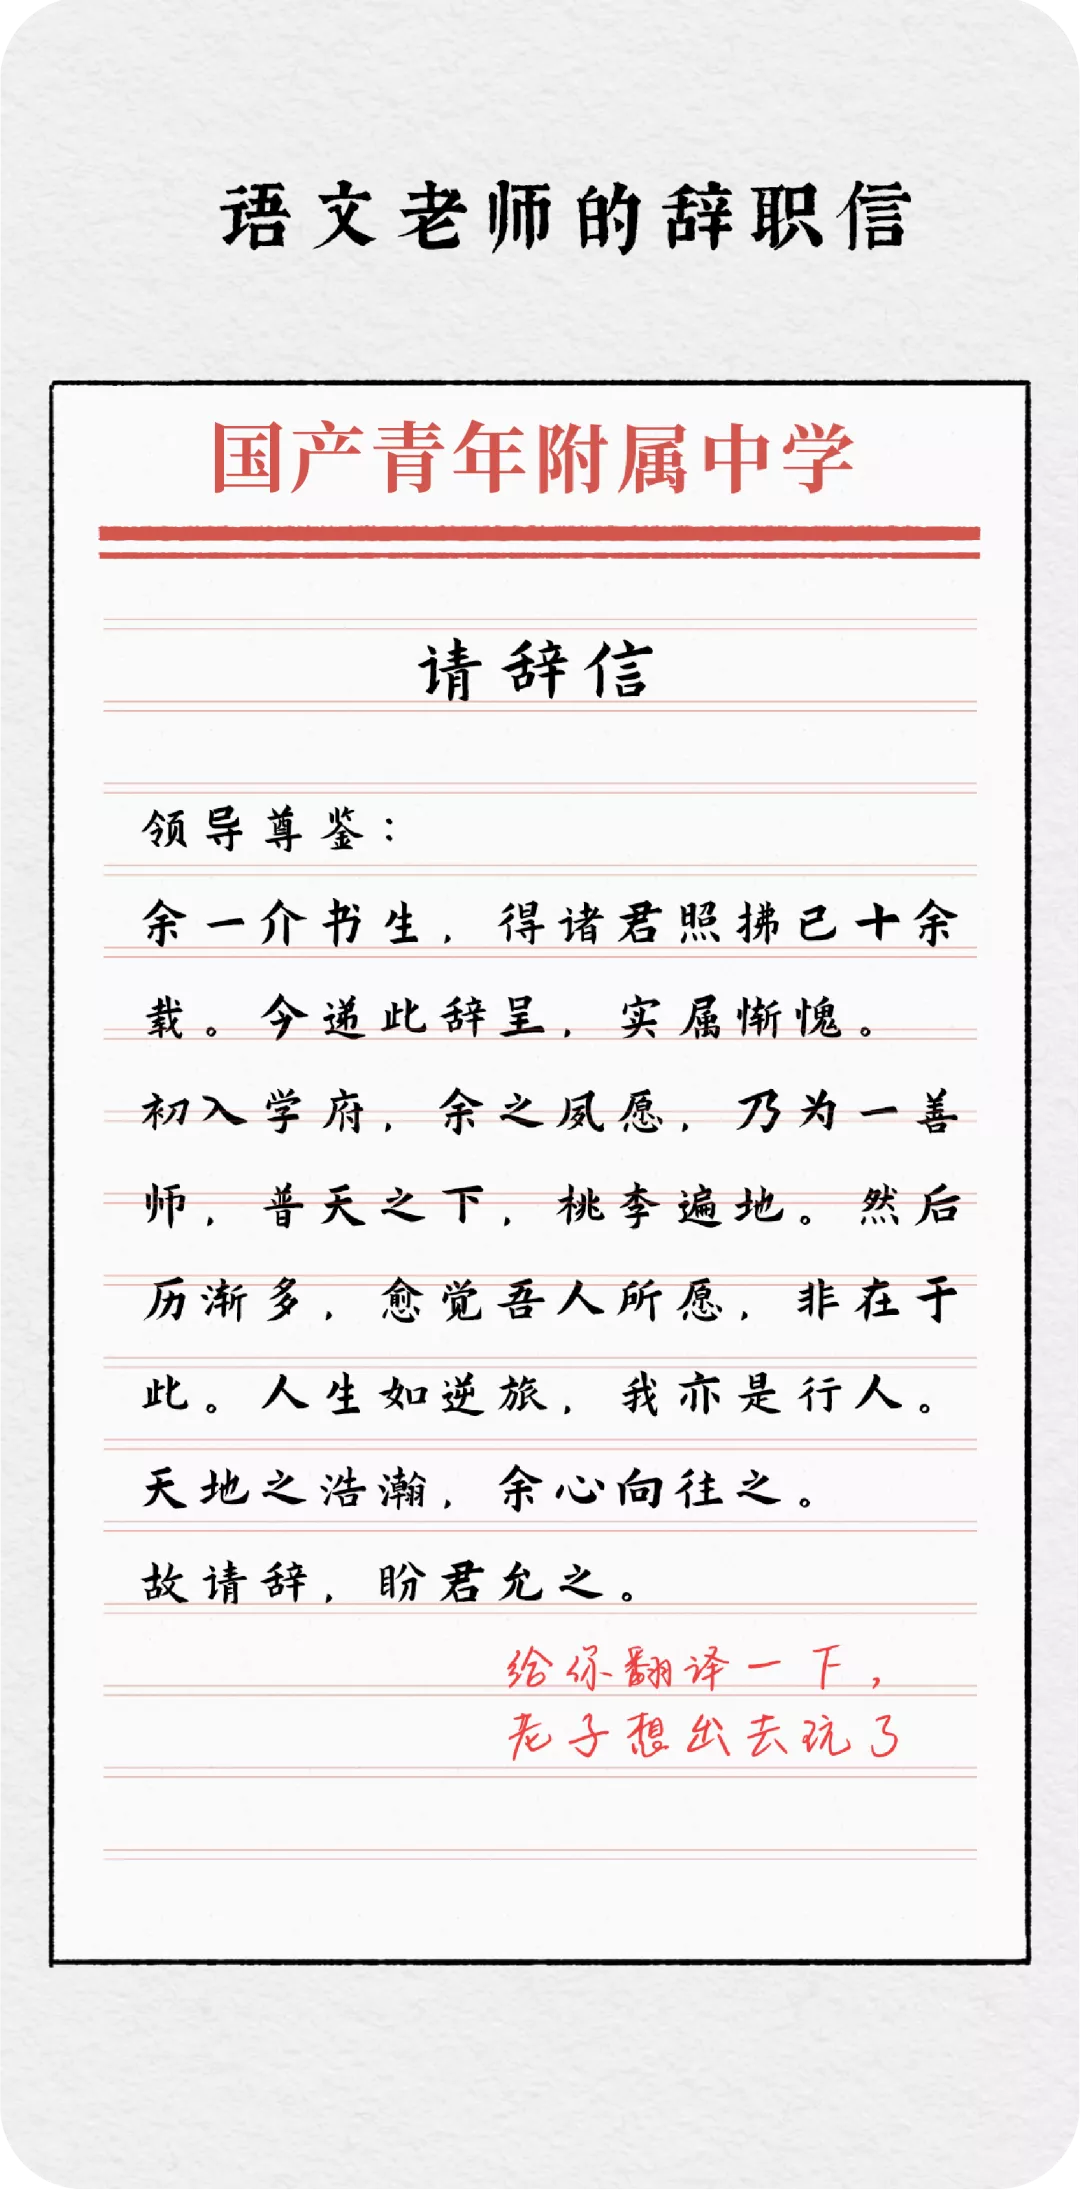 语文老师的辞职信
国产青年附属中学
请辞信
领导尊鉴：
余一介书生，得诸君照拂已十余
载。今递此辞呈，实属惭愧。
初入学府，余之夙愿，乃为一善
师，普天之下，桃李遍地。然后
历渐多，愈觉吾人所愿，非在于
此。人生如逆旅，我亦是行人。
天地之浩瀚，余心向往之。
故请辞，盼君允之。
给你翻译一下，
老子想出去玩了